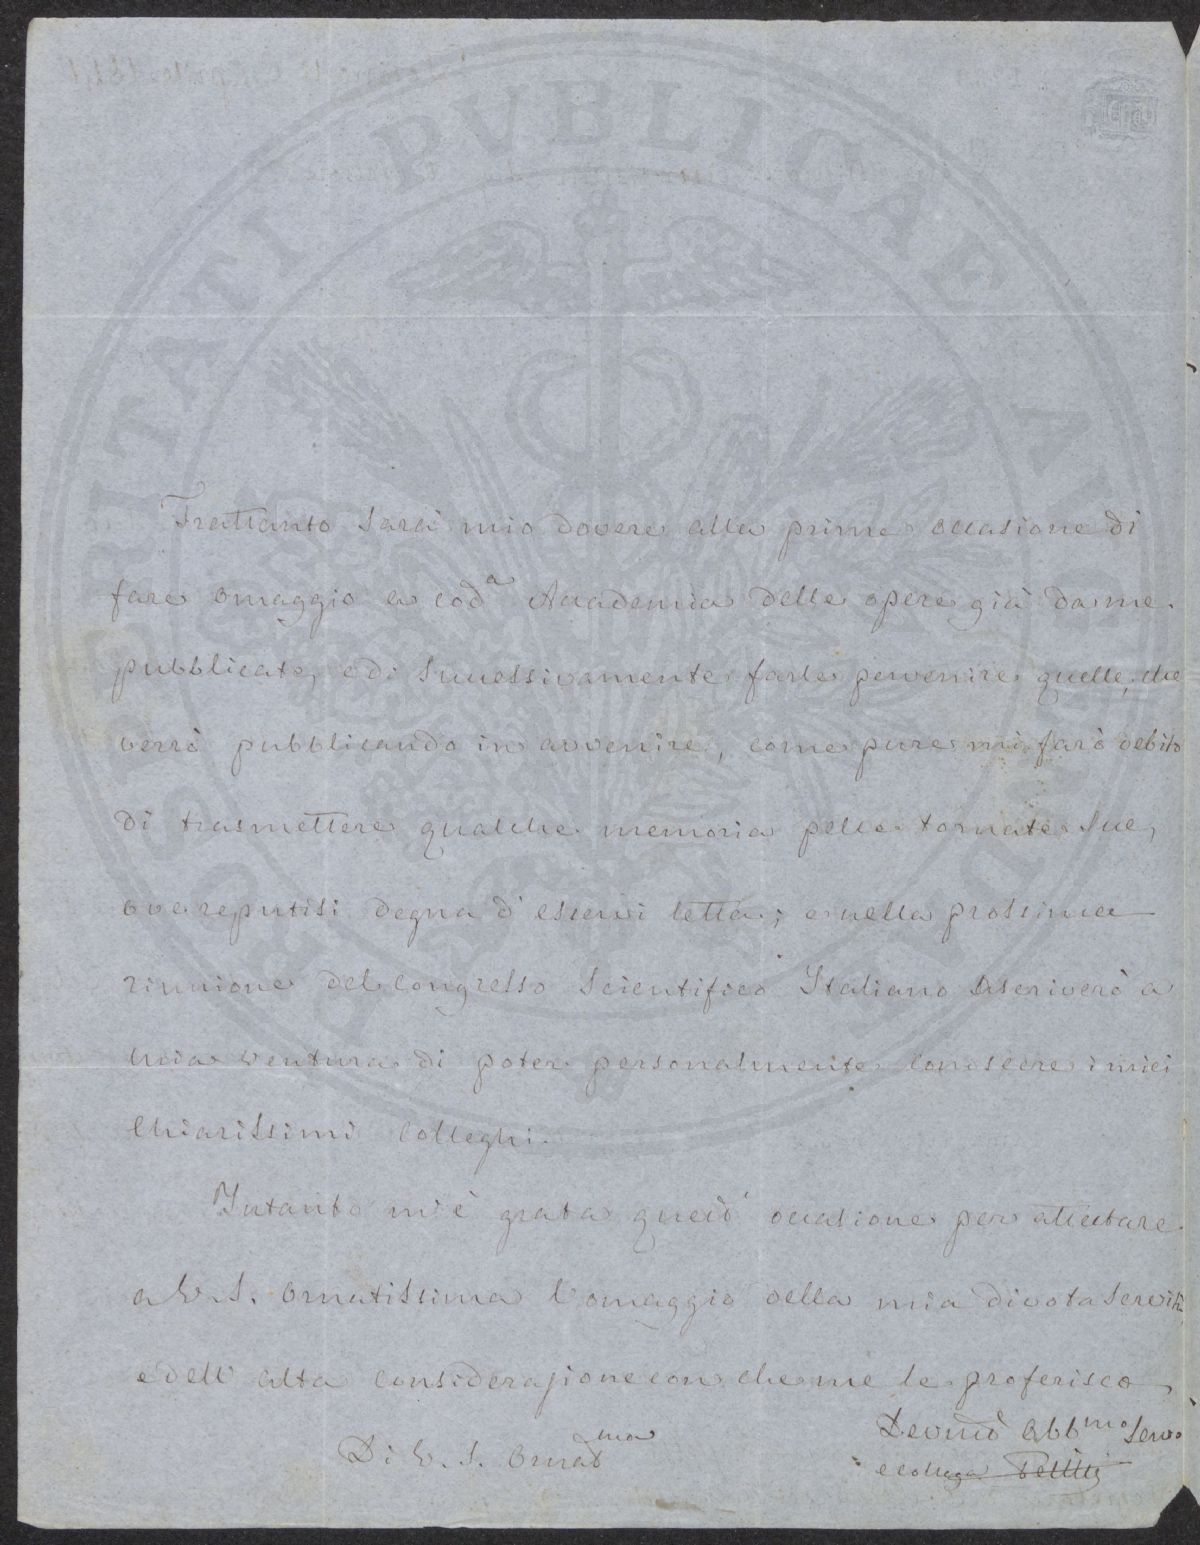 PROSPERITATI PVBLICAE AVGENDAE
Frattanto sarà mio dovere alla prima occasione di
fare omaggio a cod.ª Accademia delle opere già da me
pubblicate, e di successivamente farle pervenire quelle, che
verrò pubblicando in avvenire, come pure mi farò debito
di trasmettere qualche memoria pelle tornate sue,
ove reputisi degna d'esservi letta; e nella prossima
riunione del Congresso Scientifico Italiano ascriverò a
mia ventura di poter personalmente conoscere i miei
Chiarissimi Colleghi.
Intanto m'è grata quest' occasione per attestare
a V. S. Ornatissima l'omaggio della mia divota servitù
e dell' alta considerazione con che me le proferisco
Di V. S. Ornat.ma
Devmo Obb.mo Servo
e collega